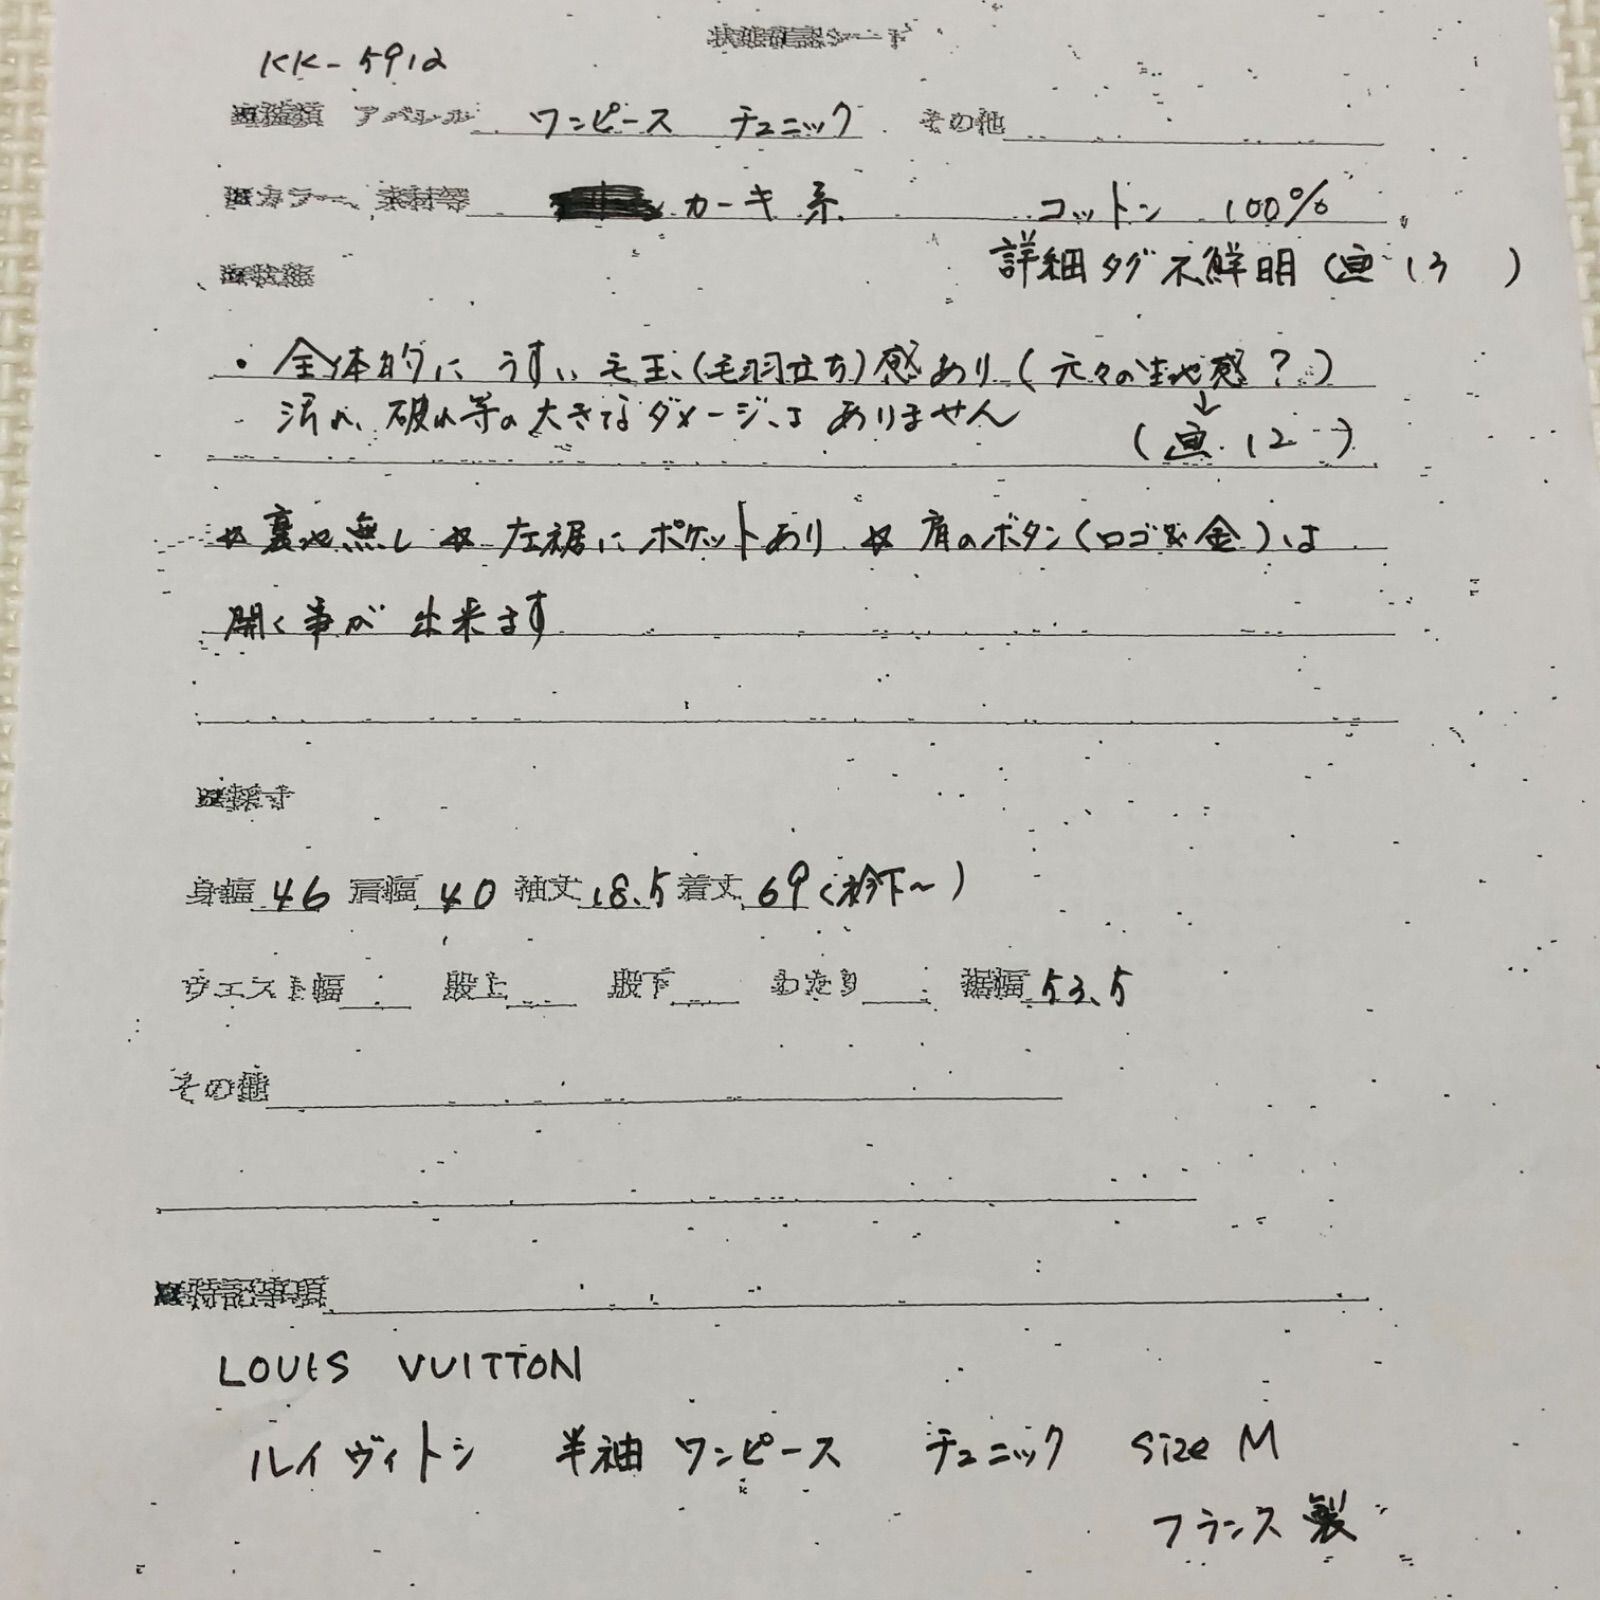 状態確認シート
KK-5912
■種類 アパレル ワンピース チュニック その他
■カラー、素材等 カーキ系 コットン 100%
詳細タグ不鮮明(画 13 )
■状態
・全体的に うすい毛玉、(毛羽立ち)感あり(元々の生地感?)
汚れ、破れ等の大きなダメージはありません
↓
(画 12 )
☆裏地無し ☆左裾にポケットあり ☆肩のボタン(ロゴ&金)は
開く事が出来ます
■採寸
身幅 46 肩幅 40 袖丈 18.5 着丈 69(衿下〜)
ウエスト幅 股上 股下 わたり 裾幅 53.5
その他
■特記事項
LOUIS VUITTON
ルイヴィトン 半袖 ワンピース チュニック size M
フランス製